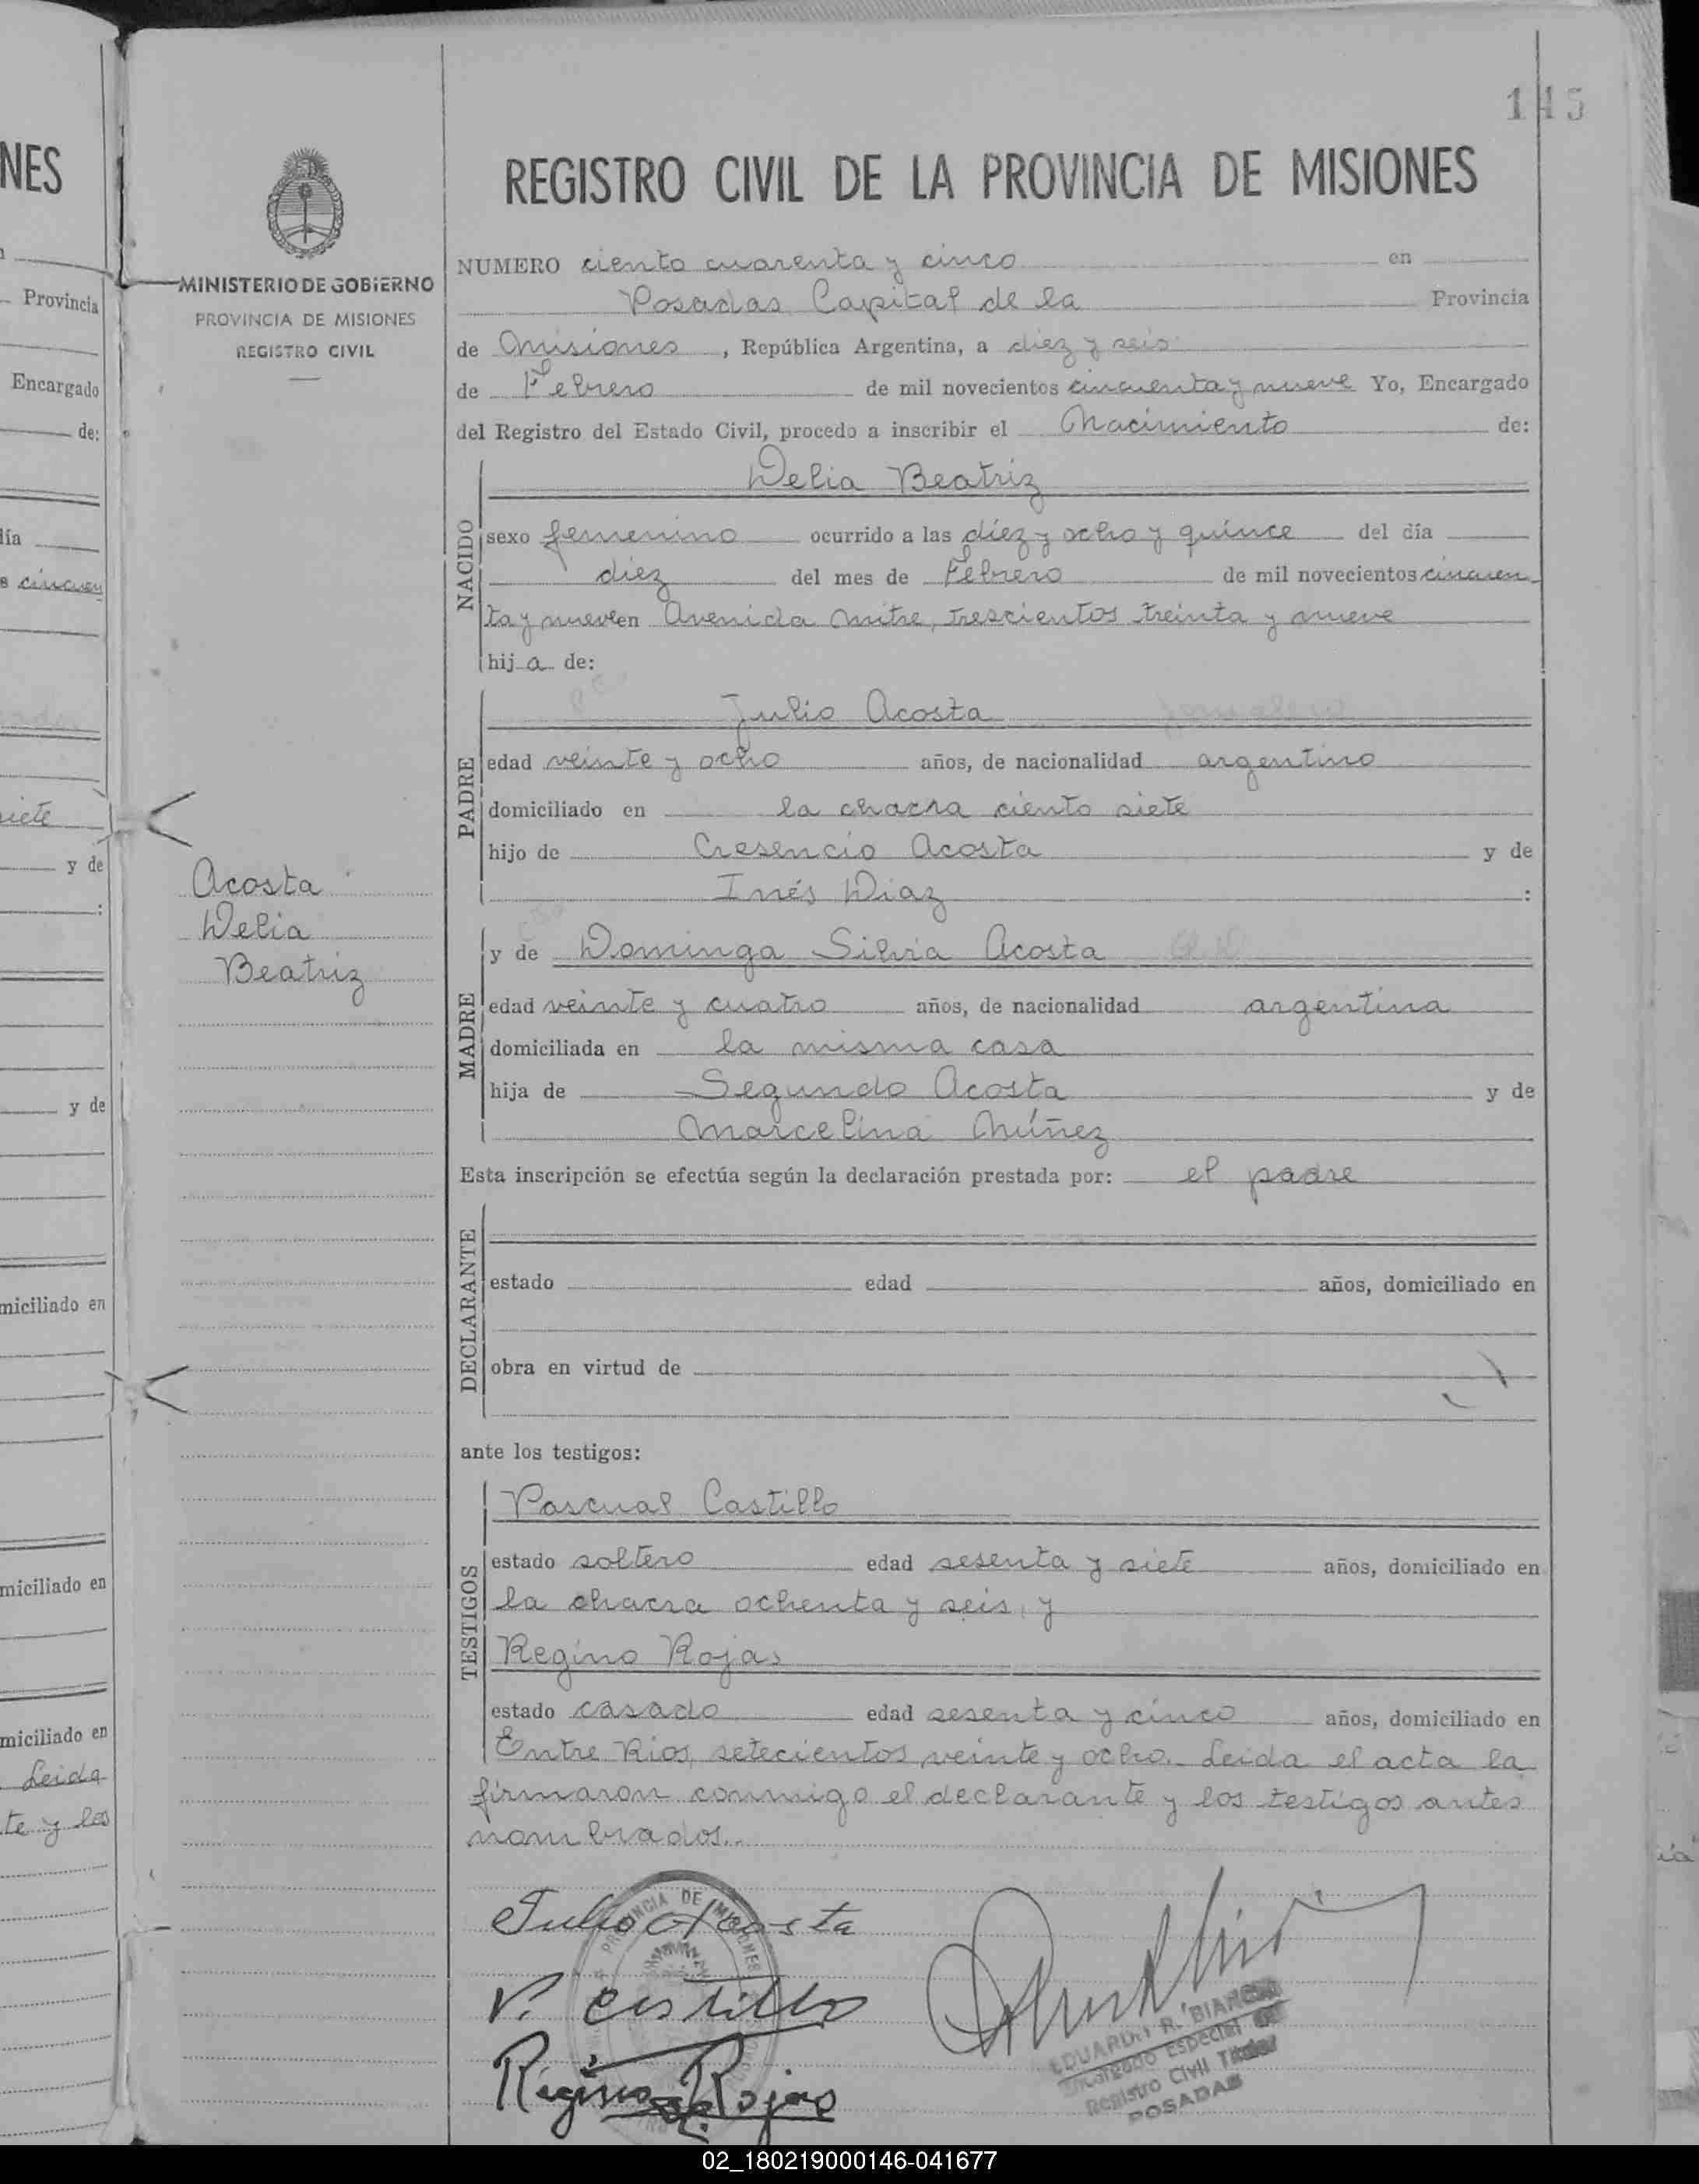 NES
Provincia
Encargado
de:
día
s cincuen
siete
y de
:
y de
miciliado en
miciliado en
miciliado en
Leida
te y los
MINISTERIO DE GOBIERNO
PROVINCIA DE MISIONES
REGISTRO CIVIL
Acosta
Delia
Beatriz
145
REGISTRO CIVIL DE LA PROVINCIA DE MISIONES
NUMERO ciento cuarenta y cinco en
Posadas Capital de la Provincia
de Misiones, República Argentina, a diez y seis
de Febrero de mil novecientos cincuenta y nueve Yo, Encargado
del Registro del Estado Civil, procedo a inscribir el Nacimiento de:
NACIDO
Delia Beatriz
sexo femenino ocurrido a las diez y ocho y quince del día
diez del mes de Febrero de mil novecientos cincuen
ta y nueve en Avenida Mitre, trescientos treinta y nueve
hij a de:
PADRE
Julio Acosta
edad veinte y ocho años, de nacionalidad argentino
domiciliado en la chacra ciento siete
hijo de Cresencio Acosta y de
Inés Diaz :
MADRE
y de Dominga Silvia Acosta
edad veinte y cuatro años, de nacionalidad argentina
domiciliada en la misma casa
hija de Segundo Acosta y de
Marcelina Núñez
Esta inscripción se efectúa según la declaración prestada por: el padre
DECLARANTE
estado edad años, domiciliado en
obra en virtud de
ante los testigos:
TESTIGOS
Pascual Castillo
estado soltero edad sesenta y siete años, domiciliado en
la chacra ochenta y seis, y
Regino Rojas
estado casado edad sesenta y cinco años, domiciliado en
Entre Rios, setecientos veinte y ocho. Leida el acta la
firmaron conmigo el declarante y los testigos antes
nombrados..
Julio Acosta
PROVINCIA DE MISIONES
P. Castillo
Regino Rojas
EDUARDO R. BIANCHI
Encargado Especial del
Registro Civil Titular
POSADAS
02_180219000146-041677